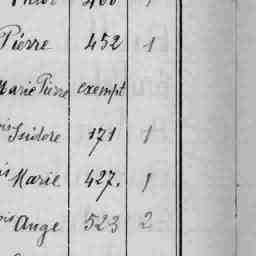 Pierre 452 1
Marie Pierre exempt
Isidore 171 1
Marie 427. 1
Ange 523 2